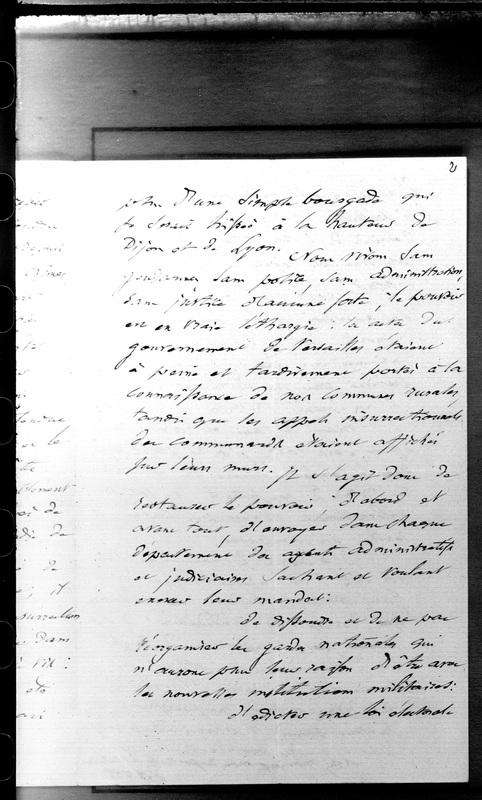 2
d'une simple bourgade qui
se serait hissée à la hauteur de
Dijon et de Lyon.
Nous vivons sans
sans police, sans administration,
sans justice d'aucune sorte ; le pouvoir
est en vraie léthargie : les actes du
gouvernement de Versailles étaient
à peine et tardivement portés à la
connaissance de nos communes rurales,
tandis que les appels insurrectionnels
des communards étaient affichés
sur leurs murs.
Il s'agit donc de
restaurer le pouvoir ; d'abord et
avant tout, d'envoyer dans chaque
département des agents administratifs
et judiciaires sachant et voulant
exercer leur mandat :
de dissoudre et de ne pas
réorganiser les gardes nationales qui
n'auront plus leur raison d'être avec
les nouvelles institutions militaires :
d'édicter une loi électorale